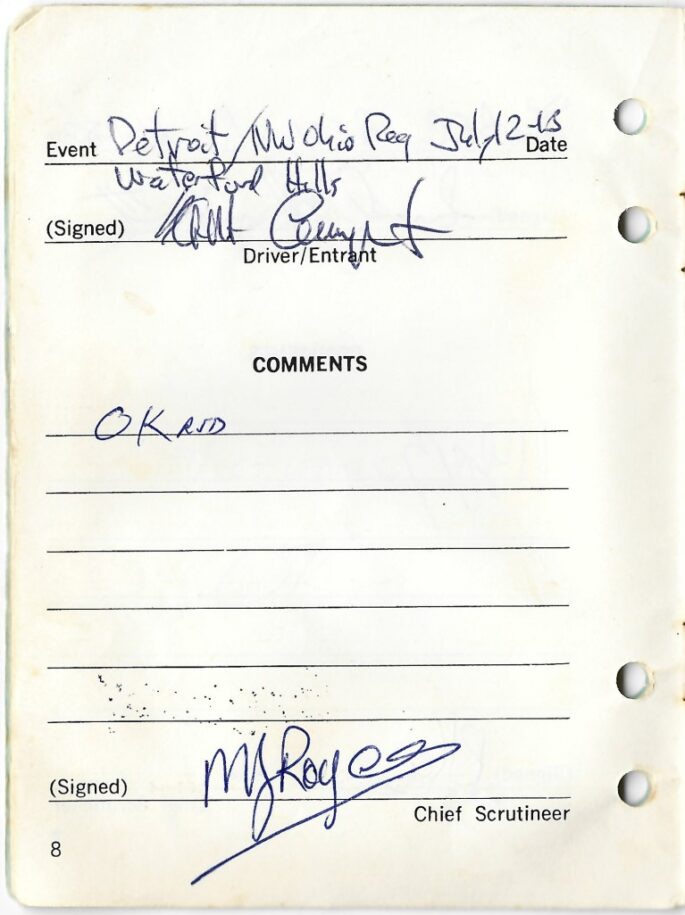 Event Detroit/NW Ohio Reg July 12-13 Date
Waterford Hills
(Signed)
Driver/Entrant
COMMENTS
OK
(Signed)
Chief Scrutineer
8